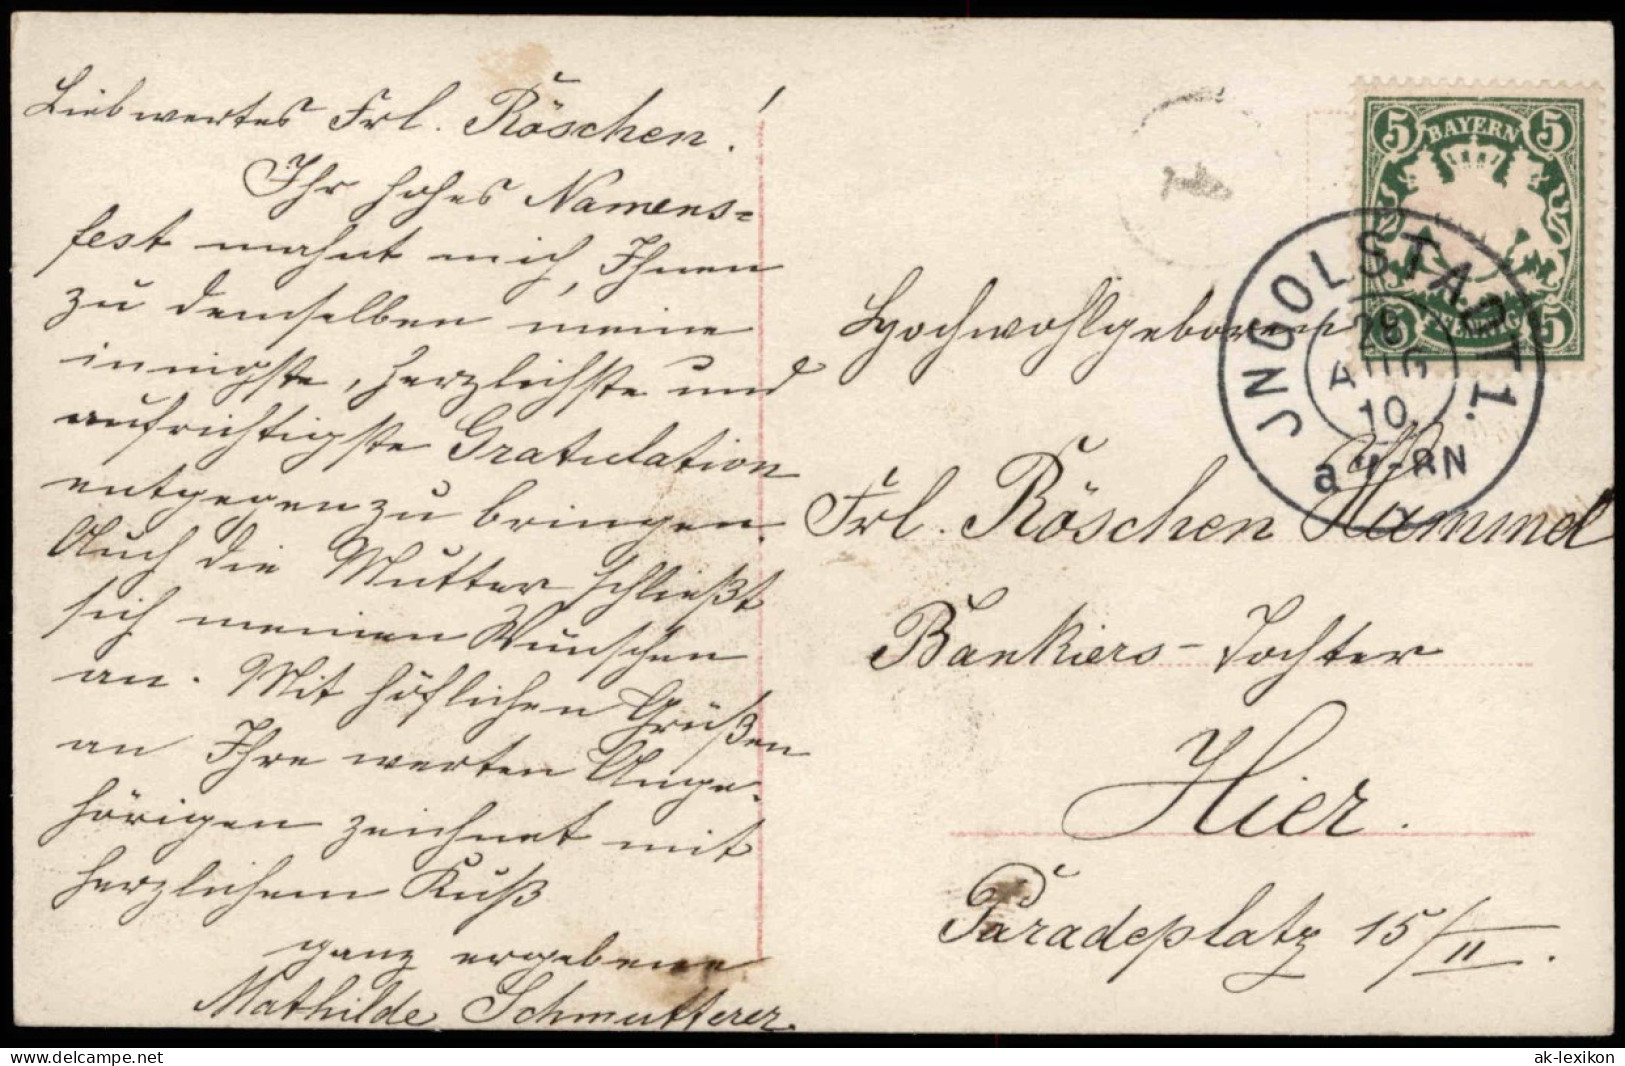 Liebwertes Frl. Röschen!
Ihr hohes Namens=
fest mahnt mich, Ihnen
zu demselben meine
innigste, herzlichste und
aufrichtigste Gratulation
entgegenzu bringen.
Auch die Mutter schließt
sich meinen Wünschen
an. Mit höflichen Grüßen
an Ihre werten Ange-
hörigen zeichnet mit
herzlichem Kuß
ganz ergebene
Mathilde Schmutterer.
5 BAYERN 5
5 PFENNIG 5
JNGOLSTADT 1.
29
AUG
10
Hochwohlgeboren
Frl. Röschen Hammel
Bankiers-Tochter
Hier.
Paradeplatz 15/II.
ak-lexikon